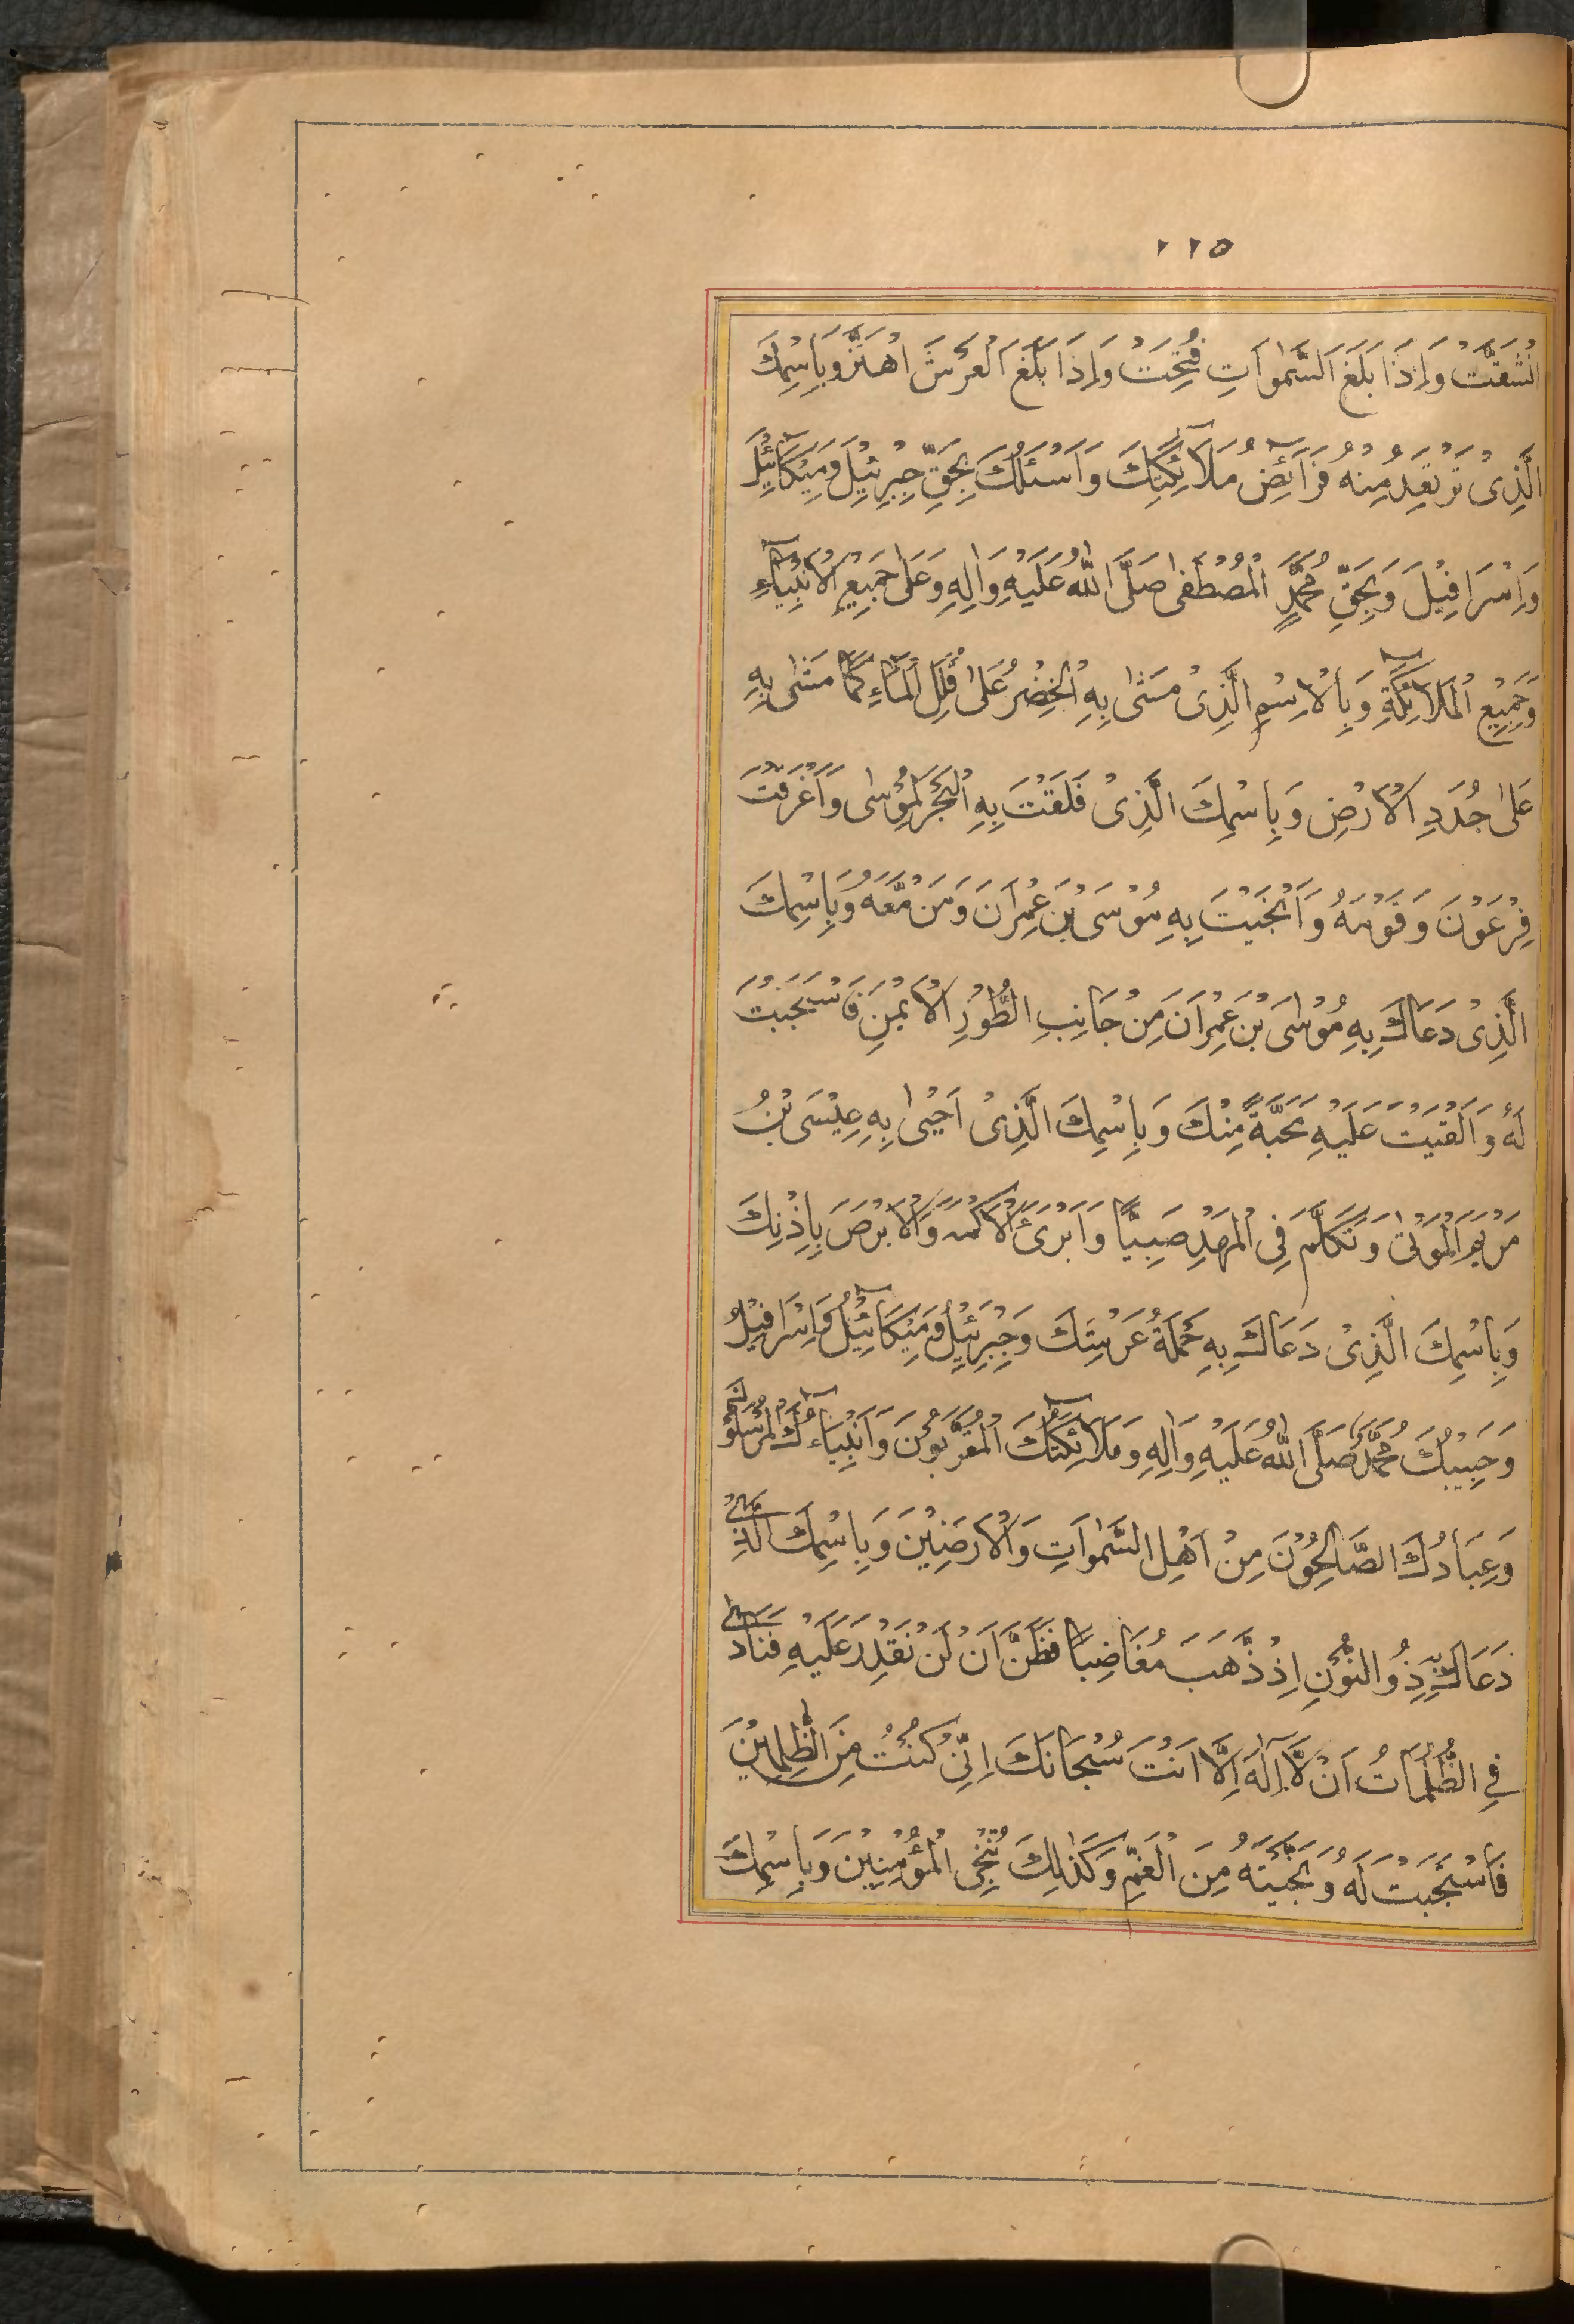 ٢٢٥
انْشَقَّتْ وَاِذَا بَلَغَ السَّمٰوَاتِ فُتِحَتْ وَاِذَا بَلَغَ الْعَرْشَ اهْتَزَّ وَبِاسْمِكَ
الَّذِىْ تَرْتَعِدُ مِنْهُ فَرَآئِضُ مَلَآئِكَتِكَ وَاَسْئَلُكَ بِحَقِّ جِبْرِئِيْلَ وَمِيْكَآئِيْلَ
وَاِسْرَافِيْلَ وَبِحَقِّ مُحَمَّدٍ الْمُصْطَفٰى صَلَّى اللّٰهُ عَلَيْهِ وَاٰلِهِ وَعَلٰى جَمِيْعِ الْاَنْبِيَآءِ
وَجَمِيْعِ الْمَلَآئِكَةِ وَبِالْاِسْمِ الَّذِىْ مَشٰى بِهِ الْخِضْرُ عَلٰى قُلَلِ الْمَآءِ كَمَا مَشٰى بِهِ
عَلٰى جُدَدِ الْاَرْضِ وَبِاسْمِكَ الَّذِىْ فَلَقْتَ بِهِ الْبَحْرَ لِمُوْسٰى وَاَغْرَقْتَ
فِرْعَوْنَ وَقَوْمَهُ وَاَنْجَيْتَ بِهِ مُوْسَى بْنَ عِمْرَانَ وَمَنْ مَّعَهُ وَبِاسْمِكَ
الَّذِىْ دَعَاكَ بِهِ مُوْسَى بْنُ عِمْرَانَ مِنْ جَانِبِ الطُّوْرِ الْاَيْمَنِ فَاسْتَجَبْتَ
لَهُ وَاَلْقَيْتَ عَلَيْهِ مَحَبَّةً مِنْكَ وَبِاسْمِكَ الَّذِىْ اَحْيٰى بِهِ عِيْسَى بْنُ
مَرْيَمَ الْمَوْتٰى وَتَكَلَّمَ فِى الْمَهْدِ صَبِيًّا وَاَبْرَئَ الْاَكْمَهَ وَالْاَبْرَصَ بِاِذْنِكَ
وَبِاسْمِكَ الَّذِىْ دَعَاكَ بِهِ حَمَلَةُ عَرْشِكَ وَجِبْرَئِيْلُ وَمِيْكَآئِيْلُ وَاِسْرَافِيْلُ
وَحَبِيْبُكَ مُحَمَّدٌ صَلَّى اللّٰهُ عَلَيْهِ وَاٰلِهِ وَمَلَآئِكَتُكَ الْمُقَرَّبُوْنَ وَاَنْبِيَآءُكَ الْمُرْسَلُوْنَ
وَعِبَادُكَ الصَّالِحُوْنَ مِنْ اَهْلِ السَّمٰوَاتِ وَالْاَرَضِيْنَ وَبِاسْمِكَ الَّذِىْ
دَعَاكَ بِهِ ذُو النُّوْنِ اِذْ ذَّهَبَ مُغَاضِبًا فَظَنَّ اَنْ لَنْ نَقْدِرَ عَلَيْهِ فَنَادٰى
فِى الظُّلُمَاتِ اَنْ لَّآ اِلٰهَ اِلَّا اَنْتَ سُبْحَانَكَ اِنِّىْ كُنْتُ مِنَ الظّٰلِمِيْنَ
فَاسْتَجَبْتَ لَهُ وَنَجَّيْتَهُ مِنَ الْغَمِّ وَكَذٰلِكَ نُنْجِى الْمُؤْمِنِيْنَ وَبِاسْمِكَ